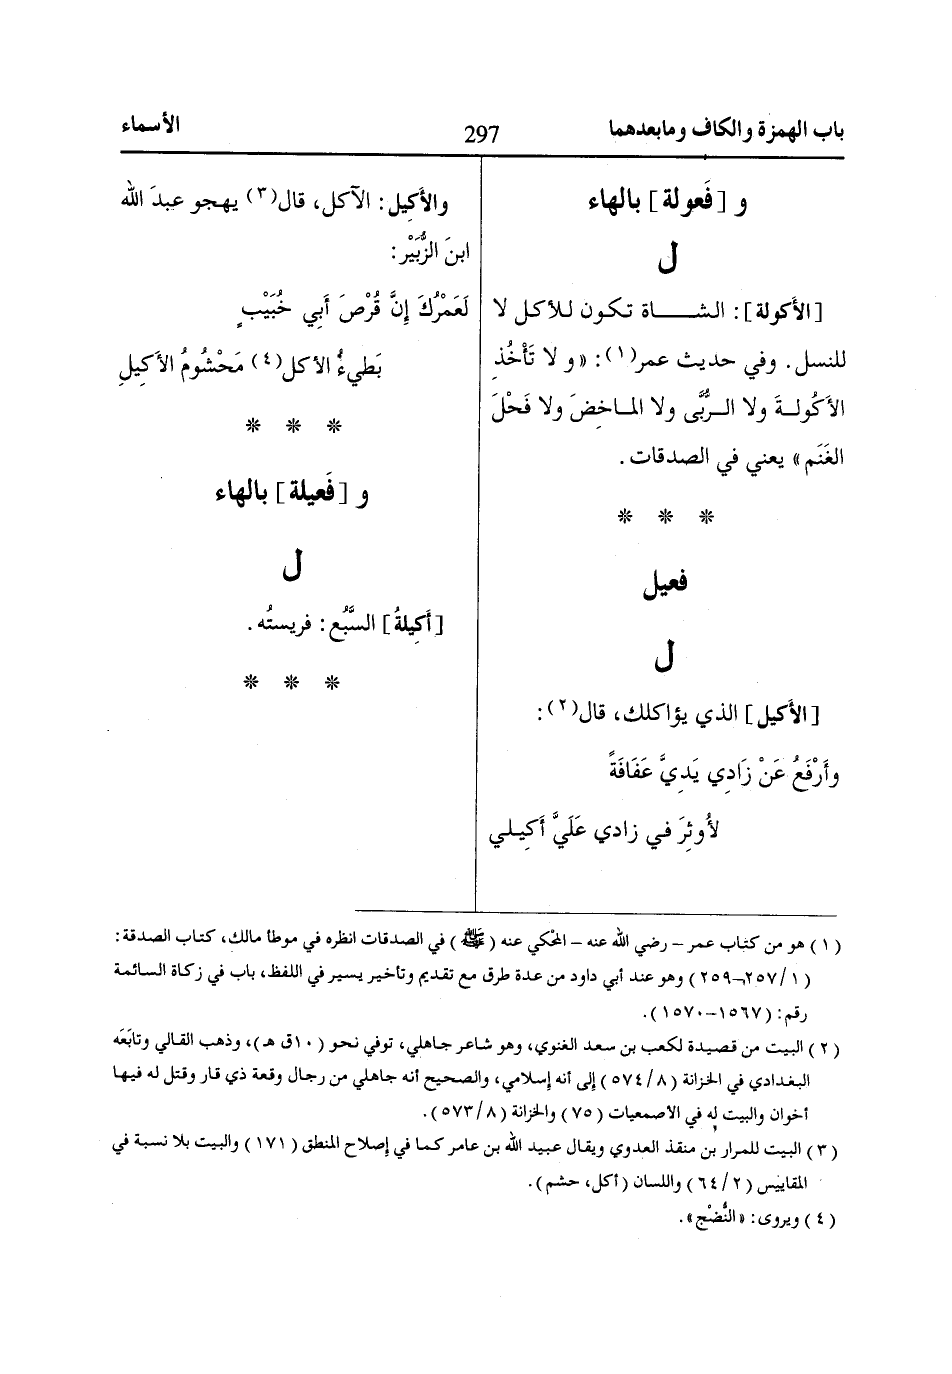 باب الهمزة والكاف ومابعدهما
297
الأسماء
و [فَعولة] بالهاء
ل
[الأكولة]: الشاة تكون للأكل لا
للنسل. وفي حديث عمر(١): «و لا تَأْخُذِ
الأَكُولةَ ولا الرُّبَّى ولا الماخِضَ ولا فَحْلَ
الغَنَم» يعني في الصدقات.
* * *
فعيل
ل
[الأكيل] الذي يؤاكلك، قال(٢):
وأَرْفَعُ عَنْ زَادِي يَدِيَّ عَفَافَةً
لأُوثِرَ في زادي عَلَيَّ أَكِيلي
والأَكيل: الآكل، قال(٣) يهجو عبدَ الله
ابنَ الزُّبَيْر:
لَعَمْرُكَ إِنَّ قُرْصَ أَبي خُبَيْبٍ
بَطيءُ الأكل(٤) مَحْشُومُ الأَكِيلِ
* * *
و [فَعيلة] بالهاء
ل
[أكيلةُ] السَّبُع: فريستُه.
* * *
(١) هو من كتاب عمر – رضي الله عنه – المحْكي عنه (ﷺ) في الصدقات انظره في موطأ مالك، كتاب الصدقة:
(١/٢٥٧ـ٢٥٩) وهو عند أبي داود من عدة طرق مع تقديم وتأخير يسير في اللفظ، باب في زكاة السائمة
رقم: (١٥٦٧–١٥٧٠).
(٢) البيت من قصيدة لكعب بن سعد الغنوي، وهو شاعر جاهلي، توفي نحو (١٠ق هـ)، وذهب القالي وتابَعَه
البغدادي في الخزانة (٨/٥٧٤) إلى أنه إسلامي، والصحيح أنه جاهلي من رجال وقعة ذي قار وقتل له فيها
أخوان والبيت له في الاصمعيات (٧٥) والخزانة (٨/٥٧٣).
(٣) البيت للمرار بن منقذ العدوي ويقال عبيد الله بن عامر كما في إصلاح المنطق (١٧١) والبيت بلا نسبة في
المقاييس (٢/٦٤) واللسان (أكل، حشم).
(٤) ويروى: «النُّضْج».